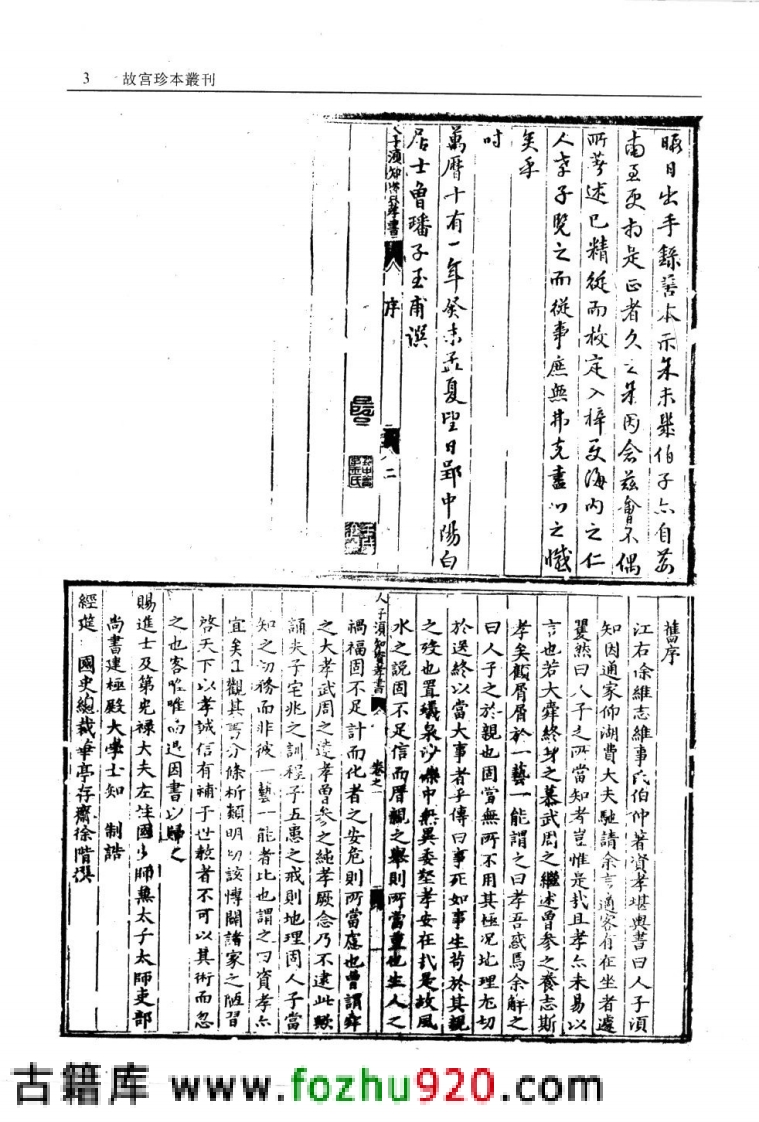 3 故宫珍本叢刊
暇日出手錄善本示朱未幾伯子六自
南
所著述已精從而校定入梓孜海內之仁
人孝子覽之而從事庶無弗克盡心之憾
矣乎
时
萬曆十有一年癸未孟夏望日鄞中陽白
居士曾璠子玉甫譔
人子須知資孝書 序 二
舊序
江右余維志維事氏伯仲著資孝堪輿書曰人子須
知因通家仰湖費大夫馳請余言適客有在坐者遽
瞿然曰人子之所當知者豈惟是哉且孝六未易以
言也若大舜終身之慕武周之繼述曾參之養志斯
孝矣顧屑屑於一藝一能謂之曰孝吾惑焉余解之
曰人子之於親也固當無所不用其極况地理尤切
於送終以當大事者乎傳曰事死如事生苟於其親
之殁也置蟻泉沙礫中無異委壑孝安在哉是故風
水之說固不足信而厝親之舉則所當重也生人之
人子須知資孝書 卷之一 一
禍福固不足計而化者之安危則所當慮也曾謂舜
之大孝武周之達孝曾參之純孝厥念乃不逮此歟
誦夫子宅兆之訓程子五患之戒則地理固人子當
知之切務而非彼一藝一能者比也謂之曰資孝六
宜矣且觀其書分條析類明切該博闢諸家之陋習
啓天下以孝誠信有補于世教者不可以其術而忽
之也客唯唯而退因書以歸之
賜進士及第光祿大夫左柱國少師兼太子太師吏部
尚書建極殿大學士知 制誥
經筵 國史總裁華亭存齋徐階撰
古籍库 www.fozhu920.com